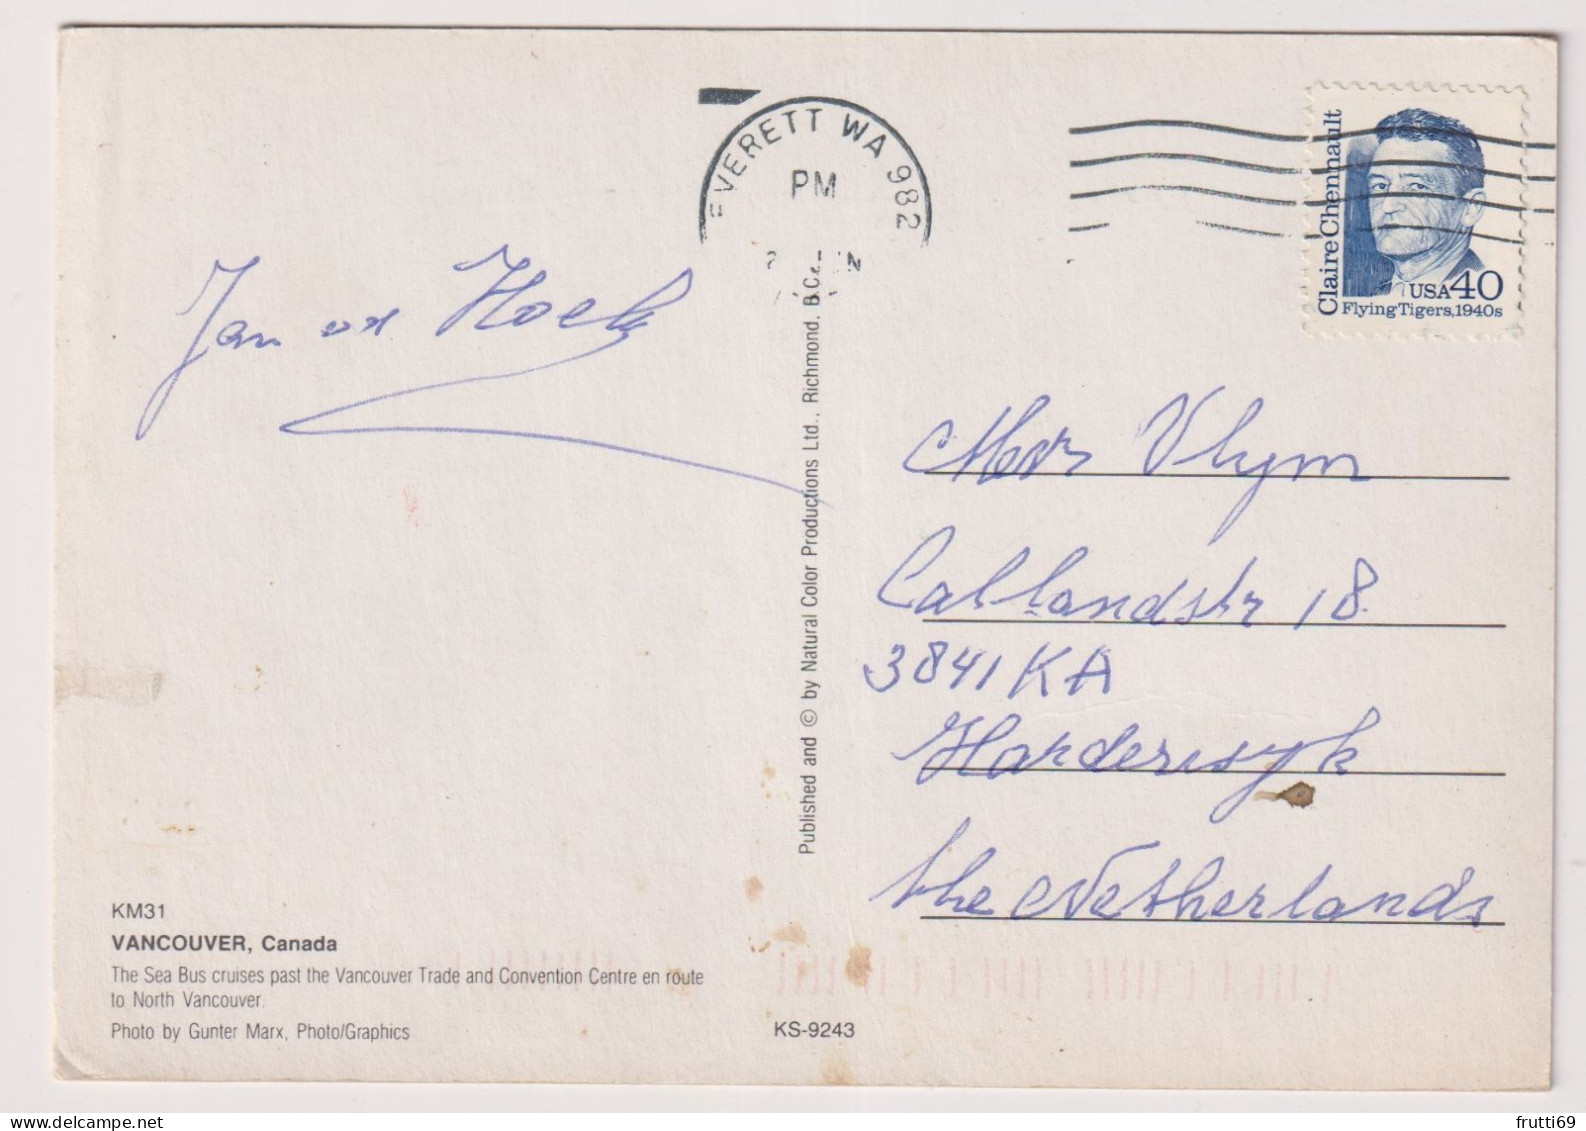 EVERETT WA 982
PM
Claire Chennault
USA 40
Flying Tigers, 1940s
Jan vd Hoek
Published and © by Natural Color Productions Ltd., Richmond, B.C.
Mevr Vlijm
Callandstr 18
3841 KA
Harderwyk
the Netherlands
KM31
VANCOUVER, Canada
The Sea Bus cruises past the Vancouver Trade and Convention Centre en route
to North Vancouver.
Photo by Gunter Marx, Photo/Graphics
KS-9243
www.delcampe.net
frutti69